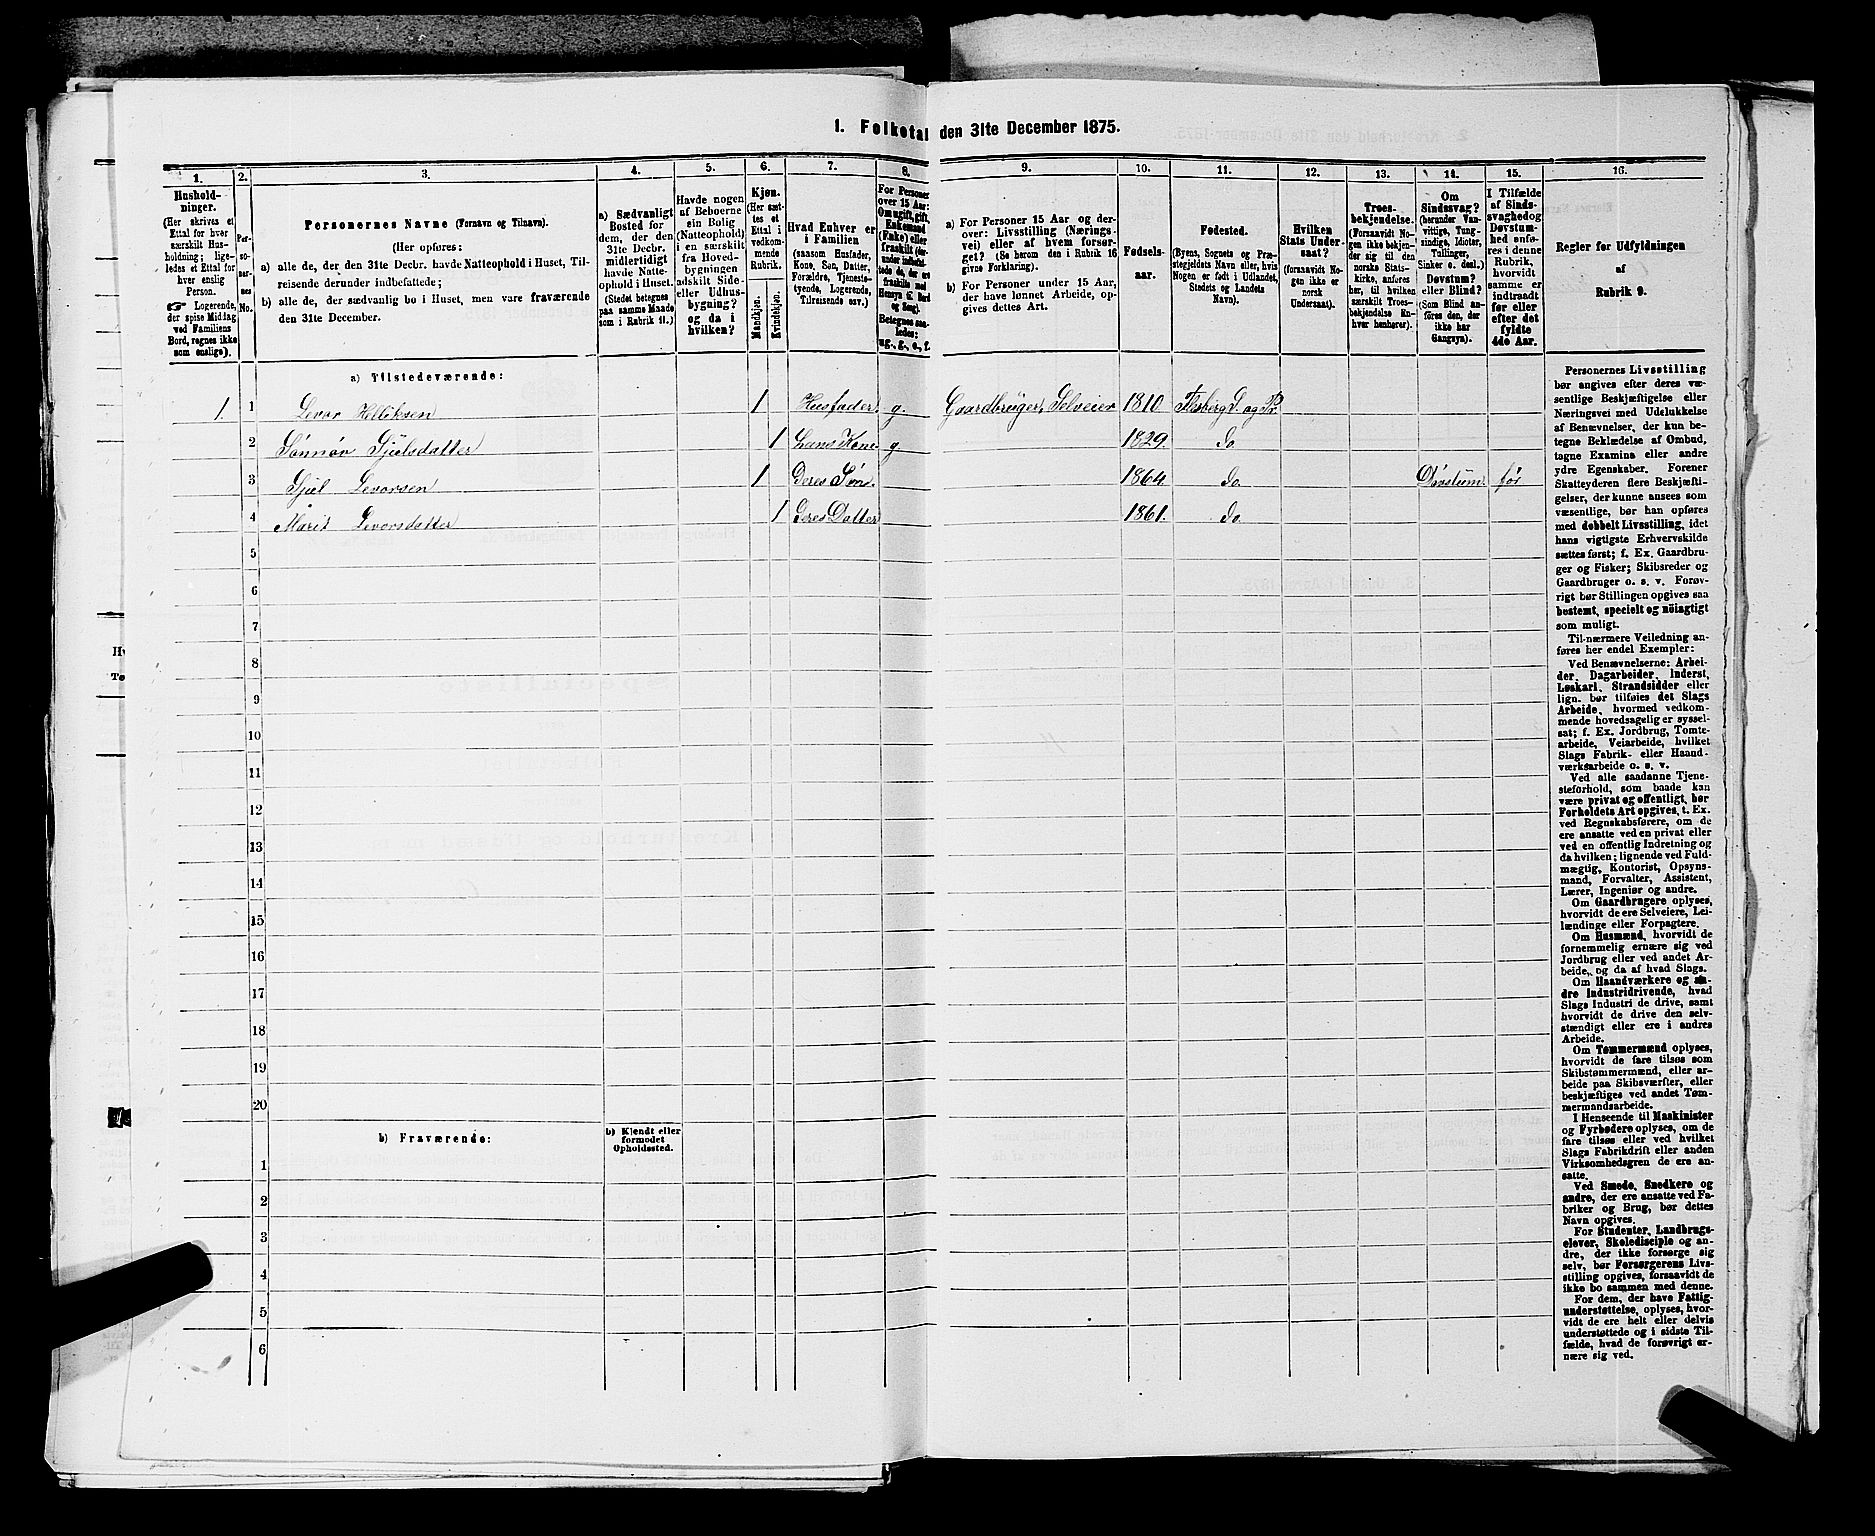 1. Folketal den 31te December 1875.
1.
Hushold-
ninger.
(Her skrives et
Ettal for hver
særskilt Hus-
holdning; lige-
ledes et Ettal for
hver enslig
Person.
☞ Logerende,
der spise Middag
ved Familiens
Bord, regnes ikke
som enslige).
2.
Per-
soner-
nes
No.
3.
Personernes Navne (Fornavn og Tilnavn).
(Her opføres:
a) alle de, der den 31te Decbr. havde Natteophold i Huset, Til-
reisende derunder indbefattede;
b) alle de, der sædvanlig bo i Huset, men vare fraværende
den 31te December.
4.
a) Sædvanligt
Bosted for
dem, der den
31te Decbr.
midlertidigt
havde Natte-
ophold i Huset.
(Stedet betegnes
paa samme Maade
som i Rubrik 11.)
5.
Havde nogen
af Beboerne
sin Bolig
(Natteophold)
i en særskilt
fra Hoved-
bygningen
adskilt Side-
eller Udhus-
bygning?
og da i
hvilken?
6.
Kjøn.
(Her sæt-
tes et
Ettal i
vedkom-
mende
Rubrik.
Mandkjøn.
Kvindekjøn.
7.
Hvad Enhver er
i Familien
(saasom Husfader,
Kone, Søn, Datter,
Forældre, Tjeneste-
tyende, Logerende,
Tilreisende osv.)
8.
For Personer
over 15 Aar:
Om ugift, gift,
Enkemand
(Enke) eller
fraskilt
Betegnes saa-
ledes:
ug., g., e., f.
9.
a) For Personer 15 Aar og der-
over: Livsstilling (Nærings-
vei) eller af hvem forsør-
get? (Se herom den i Rubrik 16
givne Forklaring).
b) For Personer under 15 Aar,
der have lønnet Arbeide, op-
gives dettes Art.
10.
Fødsels-
aar.
11.
Fødested.
(Byens, Sognets og Præ-
stegjeldets Navn eller, hvis
Nogen er født i Udlandet,
Stedets og Landets
Navn).
12.
Hvilken
Stats Under-
saat?
(foraavidt No-
gen ikke er
norsk
Undersaat).
13.
Troes-
bekjendelse.
(Foraavidt No-
gen ikke bekjen-
der sig til den
norske Stats-
kirke, anføres
her, til hvilken
særskilt Troes-
bekjendelse En-
hver henhører).
14.
Om
Sindssvag?
(herunder Van-
vittige, Tung-
sindige, Idioter,
Tullinger,
Sinker o. desl.)
Døvstum?
eller Blind?
(Som Blind an-
føres den, der
ikke har
Gangsyn).
15.
I Tilfælde
af Sinds-
svaghed og
Døvstum-
hed anfø-
res i denne
Rubrik,
hvorvidt
samme er
indtraadt
før eller
efter det
fyldte
4de Aar.
16.
Regler for Udfyldningen
af
Rubrik 9.
a) Tilstedeværende:
1. 1 Levor Helliksen 1 Husfader g. Gaardbruger, Selveier 1810 Flesberg S. og Pr.
2 Sønnøv Gjulsdatter 1 hans Kone g. 1829. do
3 Gjul Levorsen 1 Deres Søn. 1864. do. Døvstum. før
4 Marit Levorsdatter 1 Deres Datter 1861. do.
5
6
7
8
9
10
11
12
13
14
15
16
17
18
19
20
b) Fraværende:
b) Kjendt eller
formodet
Opholdssted.
1
2
3
4
5
6
Personernes Livsstilling
bør angives efter deres væ-
sentlige Beskjæftigelse eller
Næringsvei med Udelukkelse
af Benævnelser, der kun be-
tegne Beklædelse af Ombud,
tagne Examina eller andre
ydre Egenskaber. Forener
Skatteyderen flere Beskjæfti-
gelser, der kunne ansees som
væsentlige, bør han opføres
med dobbelt Livsstilling, idet
hans vigtigste Erhvervskilde
sættes først; f. Ex. Gaardbru-
ger og Fisker; Skibsreder og
Gaardbruger o. s. v. Forøv-
rigt bør Stillingen opgives saa
bestemt, specielt og nöiagtigt
som muligt.
Til nærmere Veiledning an-
føres her endel Exempler:
Ved Benævnelserne: Arbei-
der, Dagarbeider, Inderst,
Løskarl, Strandsidder eller
lign. bør tilføies det Slags
Arbeide, hvormed vedkom-
mende hovedsagelig er syssel-
sat; f. Ex. Jordbrug, Tomte-
arbeide, Veiarbeide, hvilket
Slags Fabrik- eller Haand-
værksarbeide o. s. v.
Ved alle saadanne Tjene-
steforhold, som baade kan
være privat og offentligt, bør
Forholdets Art opgives, t. Ex.
ved Regnskabsførere, om de
ere ansatte ved en privat eller
ved en offentlig Indretning og
da hvilken; lignende ved Fuld-
mægtig, Kontorist, Opsyns-
mand, Forvalter, Assistent,
Lærer, Ingeniør og andre.
Om Gaardbrugere oplyses,
hvorvidt de ere Selveiere, Lei-
lændinge eller Forpagtere.
Om Husmænd, hvorvidt de
fornemmelig ernære sig ved
Jordbrug eller ved andet Ar-
beide, og da af hvad Slags.
Om Haandværkere og an-
dre Industridrivende, hvad
Slags Industri de drive, samt
hvorvidt de drive den selv-
stændigt eller ere i andres
Arbeide.
Om Tømmermænd oplyses,
hvorvidt de fare tilsøs som
Skibstømmermænd, eller ar-
beide paa Skibsværfter, eller
beskjæftiges ved andet Tøm-
mermandsarbeide.
I Henseende til Maskinister
og Fyrbødere oplyses, om de
fare tilsøs eller ved hvilket
Slags Fabrikdrift eller anden
Virksomhedsgren de ere an-
satte.
Ved Smede, Snedkere og
andre, der ere ansatte ved Fa-
briker og Brug, bør dettes
Navn opgives.
For Studenter, Landbrugs-
elever, Skoledisciple og an-
dre, der ikke forsørge sig
selv, bør Forsørgerens Livs-
stilling opgives, forsaavidt de
ikke bo sammen med denne.
For dem, der have Fattig-
understøttelse, oplyses, hvor-
vidt de ere helt eller delvis
understøttede og i sidste Til-
fælde, hvad de forøvrigt er-
nære sig ved.